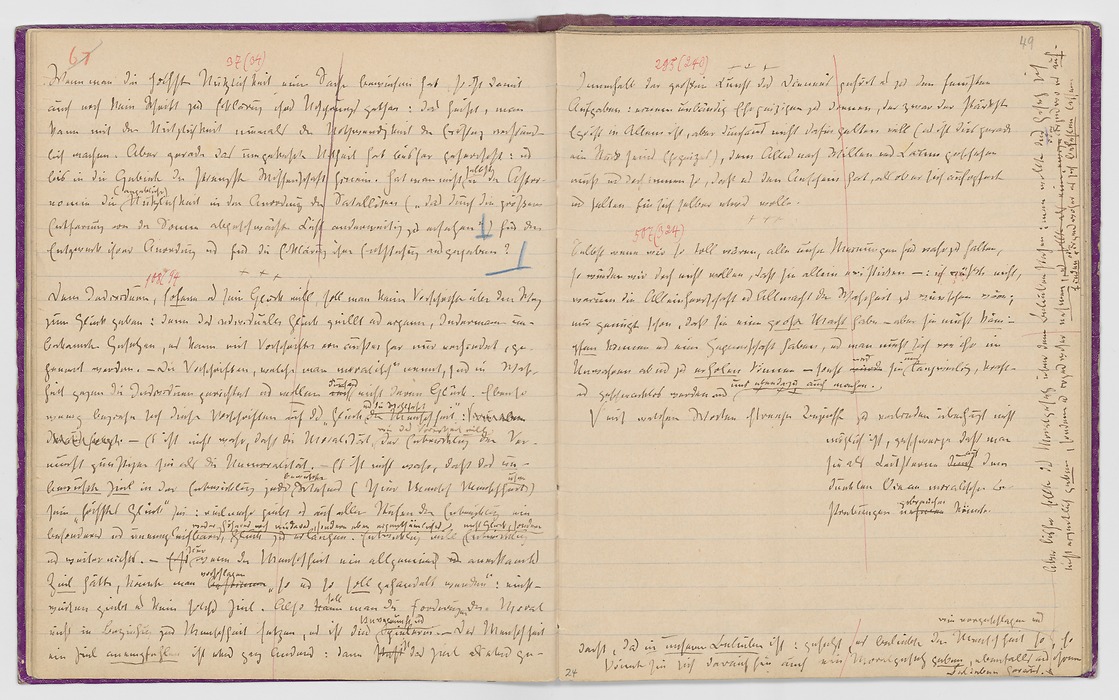 61
37 (34)
Wenn man die höchste Nützlichkeit einer Sache bewiesen hat, so ist damit
auch noch kein Schritt zur Erklärung ihres Ursprungs gethan: das heißt, man
kann mit der Nützlichkeit niemals die Nothwendigkeit der Existenz verständ-
lich machen. Aber gerade das umgekehrte Urtheil hat bisher geherrscht: und
bis in die Gebiete der strengsten Wissenschaft hinein. Hat man nicht selbst in der Astro-
nomie die (angebliche) Nützlichkeit in der Anordnung der Satelliten („das durch die größere
Entfernung von der Sonne abgeschwächte Licht anderweitig zu ersetzen“) für den
Endzweck ihrer Anordnung und für die Erklärung ihrer Entstehung ausgegeben?
108 94
Dem Individuum, sofern es sein Glück will, soll man keine Vorschriften über den Weg
zum Glück geben: denn das individuelle Glück quillt aus eigenen, Jedermann un-
bekannten Gesetzen, es kann mit Vorschriften von außen her nur verhindert, ge-
hemmt werden. — Die Vorschriften, welche man „moralisch“ nennt, sind in Wahr-
heit gegen die Individuen gerichtet und wollen durchaus nicht deren Glück. Ebenso
wenig beziehen sich diese Vorschriften auf das „Glück und die Wohlfahrt der Menschheit“:
— Es ist nicht wahr, daß die Moralität der Entwicklung der Ver-
nunft günstiger sei als die Unmoralität. — Es ist nicht wahr, daß das un-
bewußte Ziel in der Entwicklung jedes bewußten Wesens (Thier Mensch Menschheit)
sein „höchstes Glück“ sei: vielmehr giebt es auf allen Stufen der Entwicklung ein
besonderes und unvergleichbares, weder höheres noch niederes, sondern eben eigenthümliches Glück zu erlangen. Entwicklung will nicht Glück, sondern Entwicklung
und weiter nichts. — Nur wenn die Menschheit ein allgemein anerkanntes
Ziel hätte, könnte man vorschlagen „so und so soll gehandelt werden“: einst-
weilen giebt es kein solches Ziel. Also soll man die Forderungen der Moral
nicht in Beziehung zur Menschheit setzen, es ist dies Unvernunft und Spielerei. — Der Menschheit
ein Ziel anempfehlen ist etwas ganz Anderes: dann ist das Ziel als etwas ge-
49
295 (240)
Innerhalb der großen Kunst des Dienens gehört es zu den feinsten
Aufgaben: einem unbändig Ehrgeizigen zu dienen, der zwar der stärkste
Egoist in Allem ist, aber durchaus nicht dafür gelten will (es ist dies gerade
ein Stück seines Ehrgeizes), dem Alles nach Willen und Laune geschehen
muß und doch immer so, daß es den Anschein hat, als ob er sich aufopferte
und selten für sich selber etwas wolle.
507 (324)
Selbst wenn wir so toll wären, alle unsre Meinungen für wahr zu halten,
so würden wir doch nicht wollen, daß sie allein existirten —: ich wüßte nicht,
warum die Alleinherrschaft und Allmacht der Wahrheit zu wünschen wäre;
mir genügte schon, daß sie eine große Macht habe — aber sie muß käm-
pfen können und eine Gegnerschaft haben, und man muß sich von ihr im
Unwahren ab und zu erholen können — sonst wird sie uns langweilig, kraft-
und geschmacklos werden und uns ebendazu auch machen.
möglich ist, geschweige daß man
sie als Leitsterne auf dem
dunklen Ocean moralischer Be-
strebungen gebrauchen könnte.
wie vorgeschlagen wird
dacht, das in unserem Belieben ist: gesetzt, es beliebte der Menschheit so, so
könnte sie sich daraufhin auch ein Moralgesetz geben, ebenfalls aus ihrem
Belieben heraus.
Aber bisher sollte das Moralgesetz über dem Belieben stehen: man wollte dies Gesetz sich
nicht eigentlich geben, sondern es irgendwoher nehmen oder irgendwo es auf-
finden oder irgendwoher es sich befehlen lassen
24